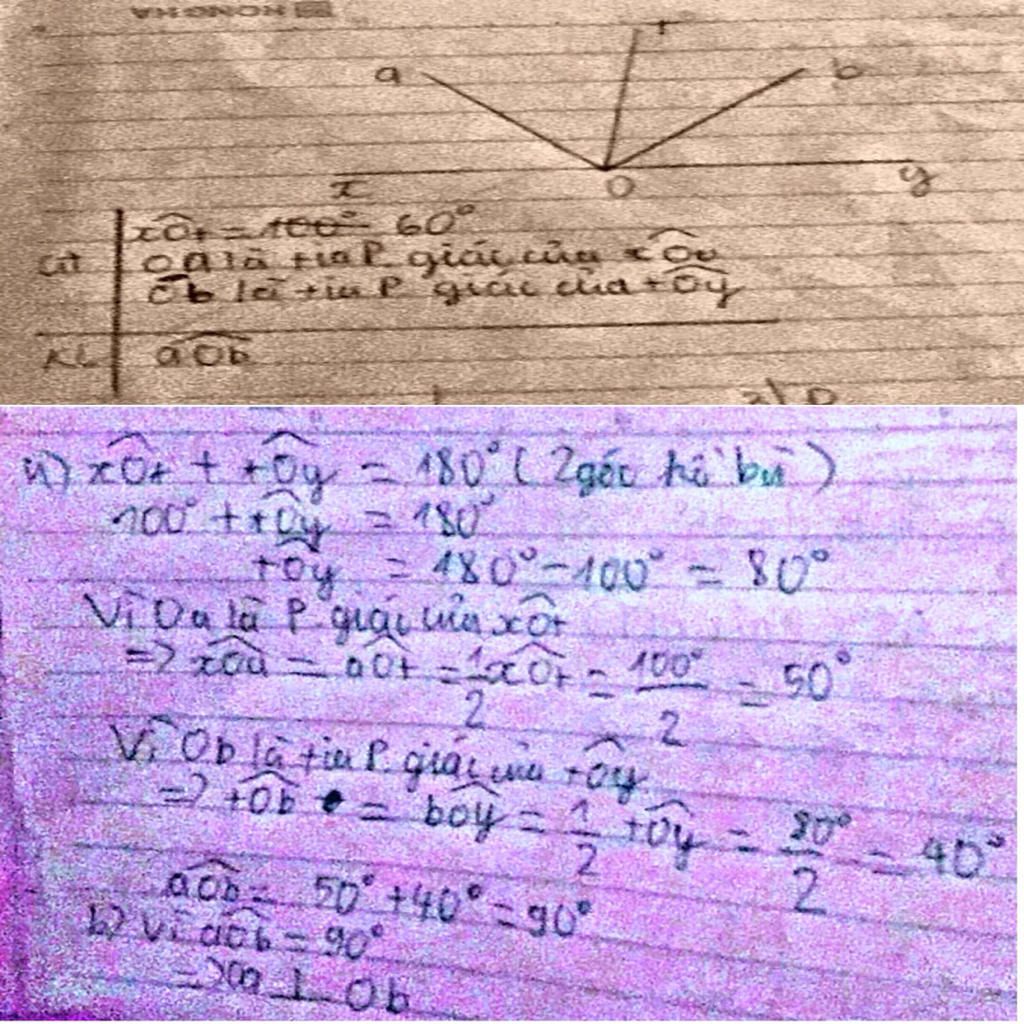 HONG HA
t
a
b
x
O
y
xOt = 100° 60°
GT
Oa là tia P. giác của xOt
Ob là tia P giác của tOy
KL
aOb
a) xOt + tOy = 180° (2 góc kề bù)
100° + tOy = 180°
tOy = 180° - 100° = 80°
Vì Oa là P. giác của xOt
=> xOa = aOt = 1/2 xOt = 100°/2 = 50°
Vì Ob là tia P. giác của tOy
=> tOb = bOy = 1/2 tOy = 80°/2 = 40°
aOb = 50° + 40° = 90°
b) Vì aOb = 90°
=> Oa ⊥ Ob